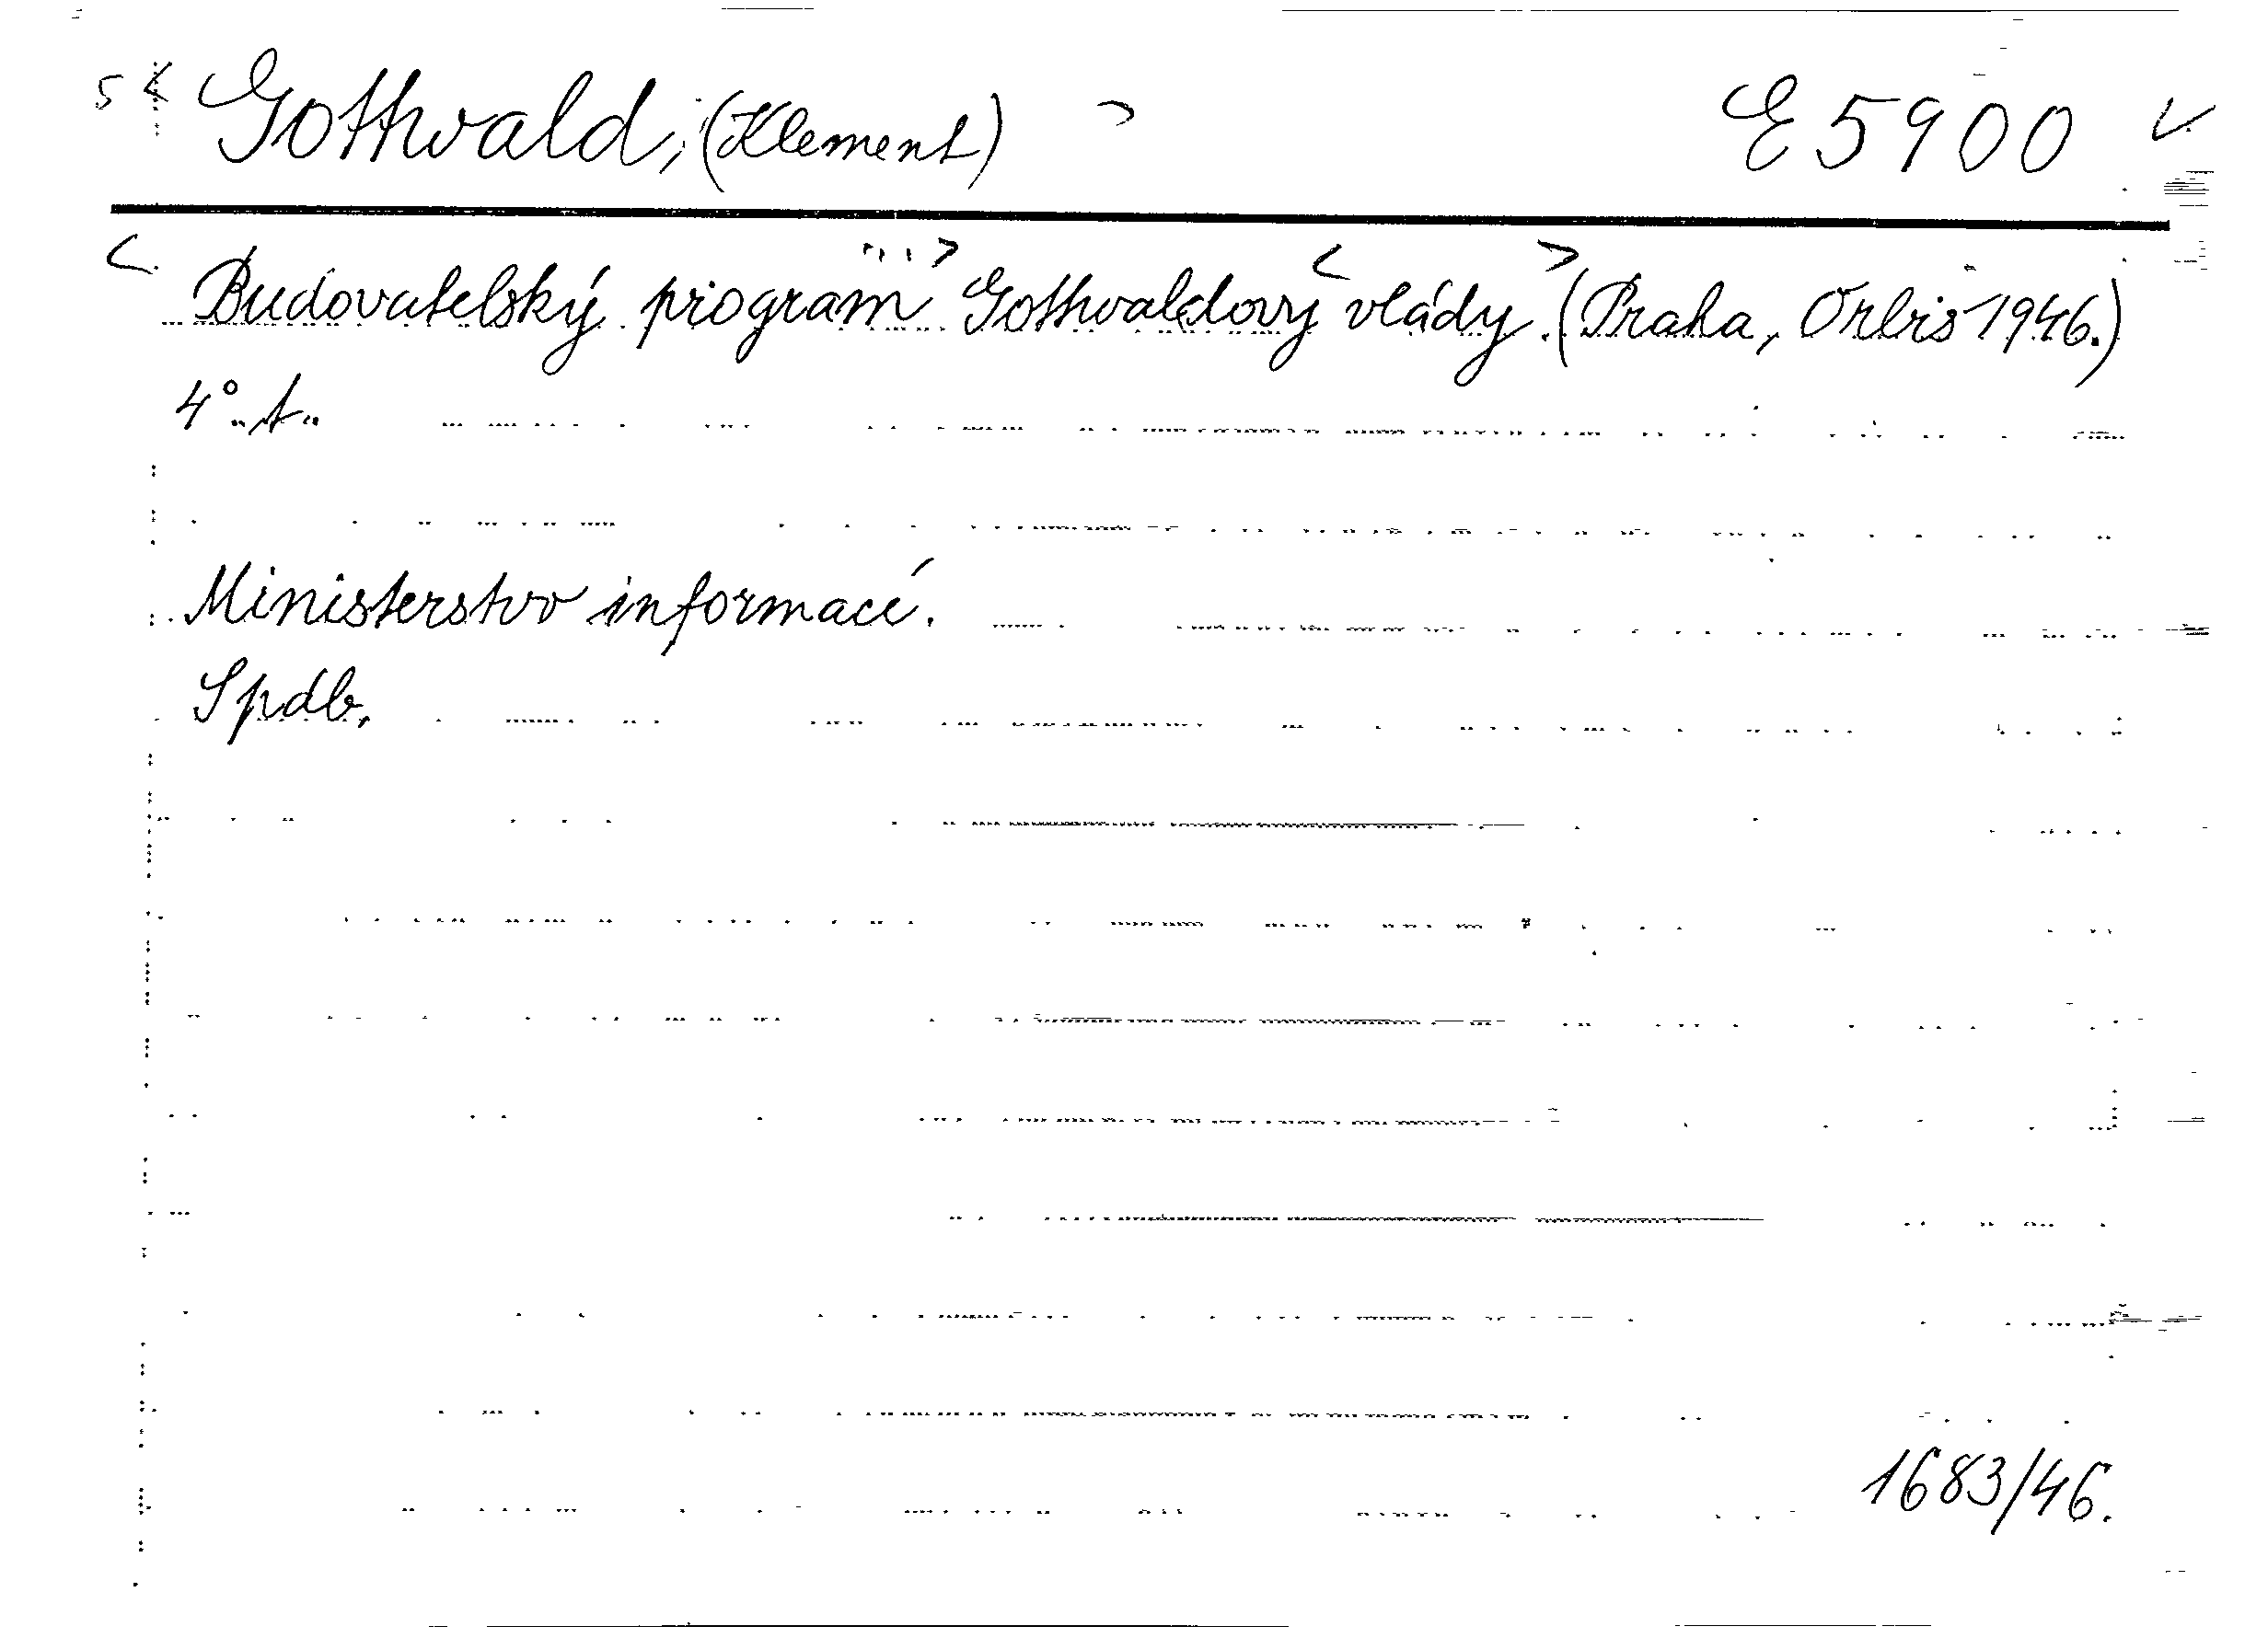 Gottwald, (Klement) E 5900
Budovatelský program Gottwaldovy vlády. (Praha, Orbis 1946.)
4°. t.
Ministerstvo informací.
Spdb.
1683/46.